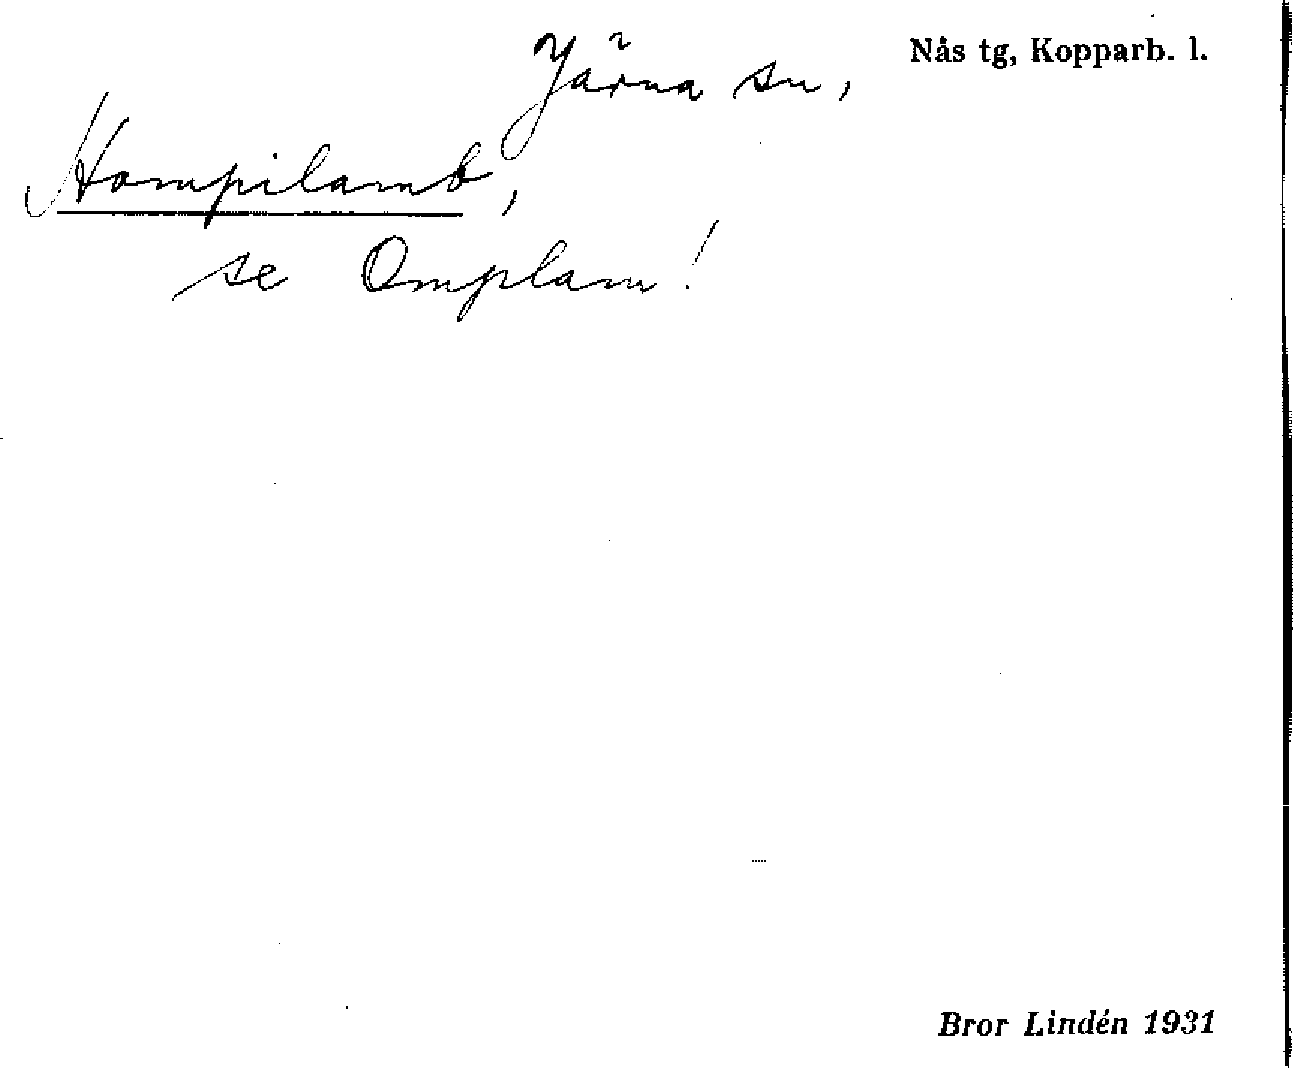 Järna sn, Nås tg, Kopparb. l.
Hompilamb,
se Omplam!
Bror Lindén 1931